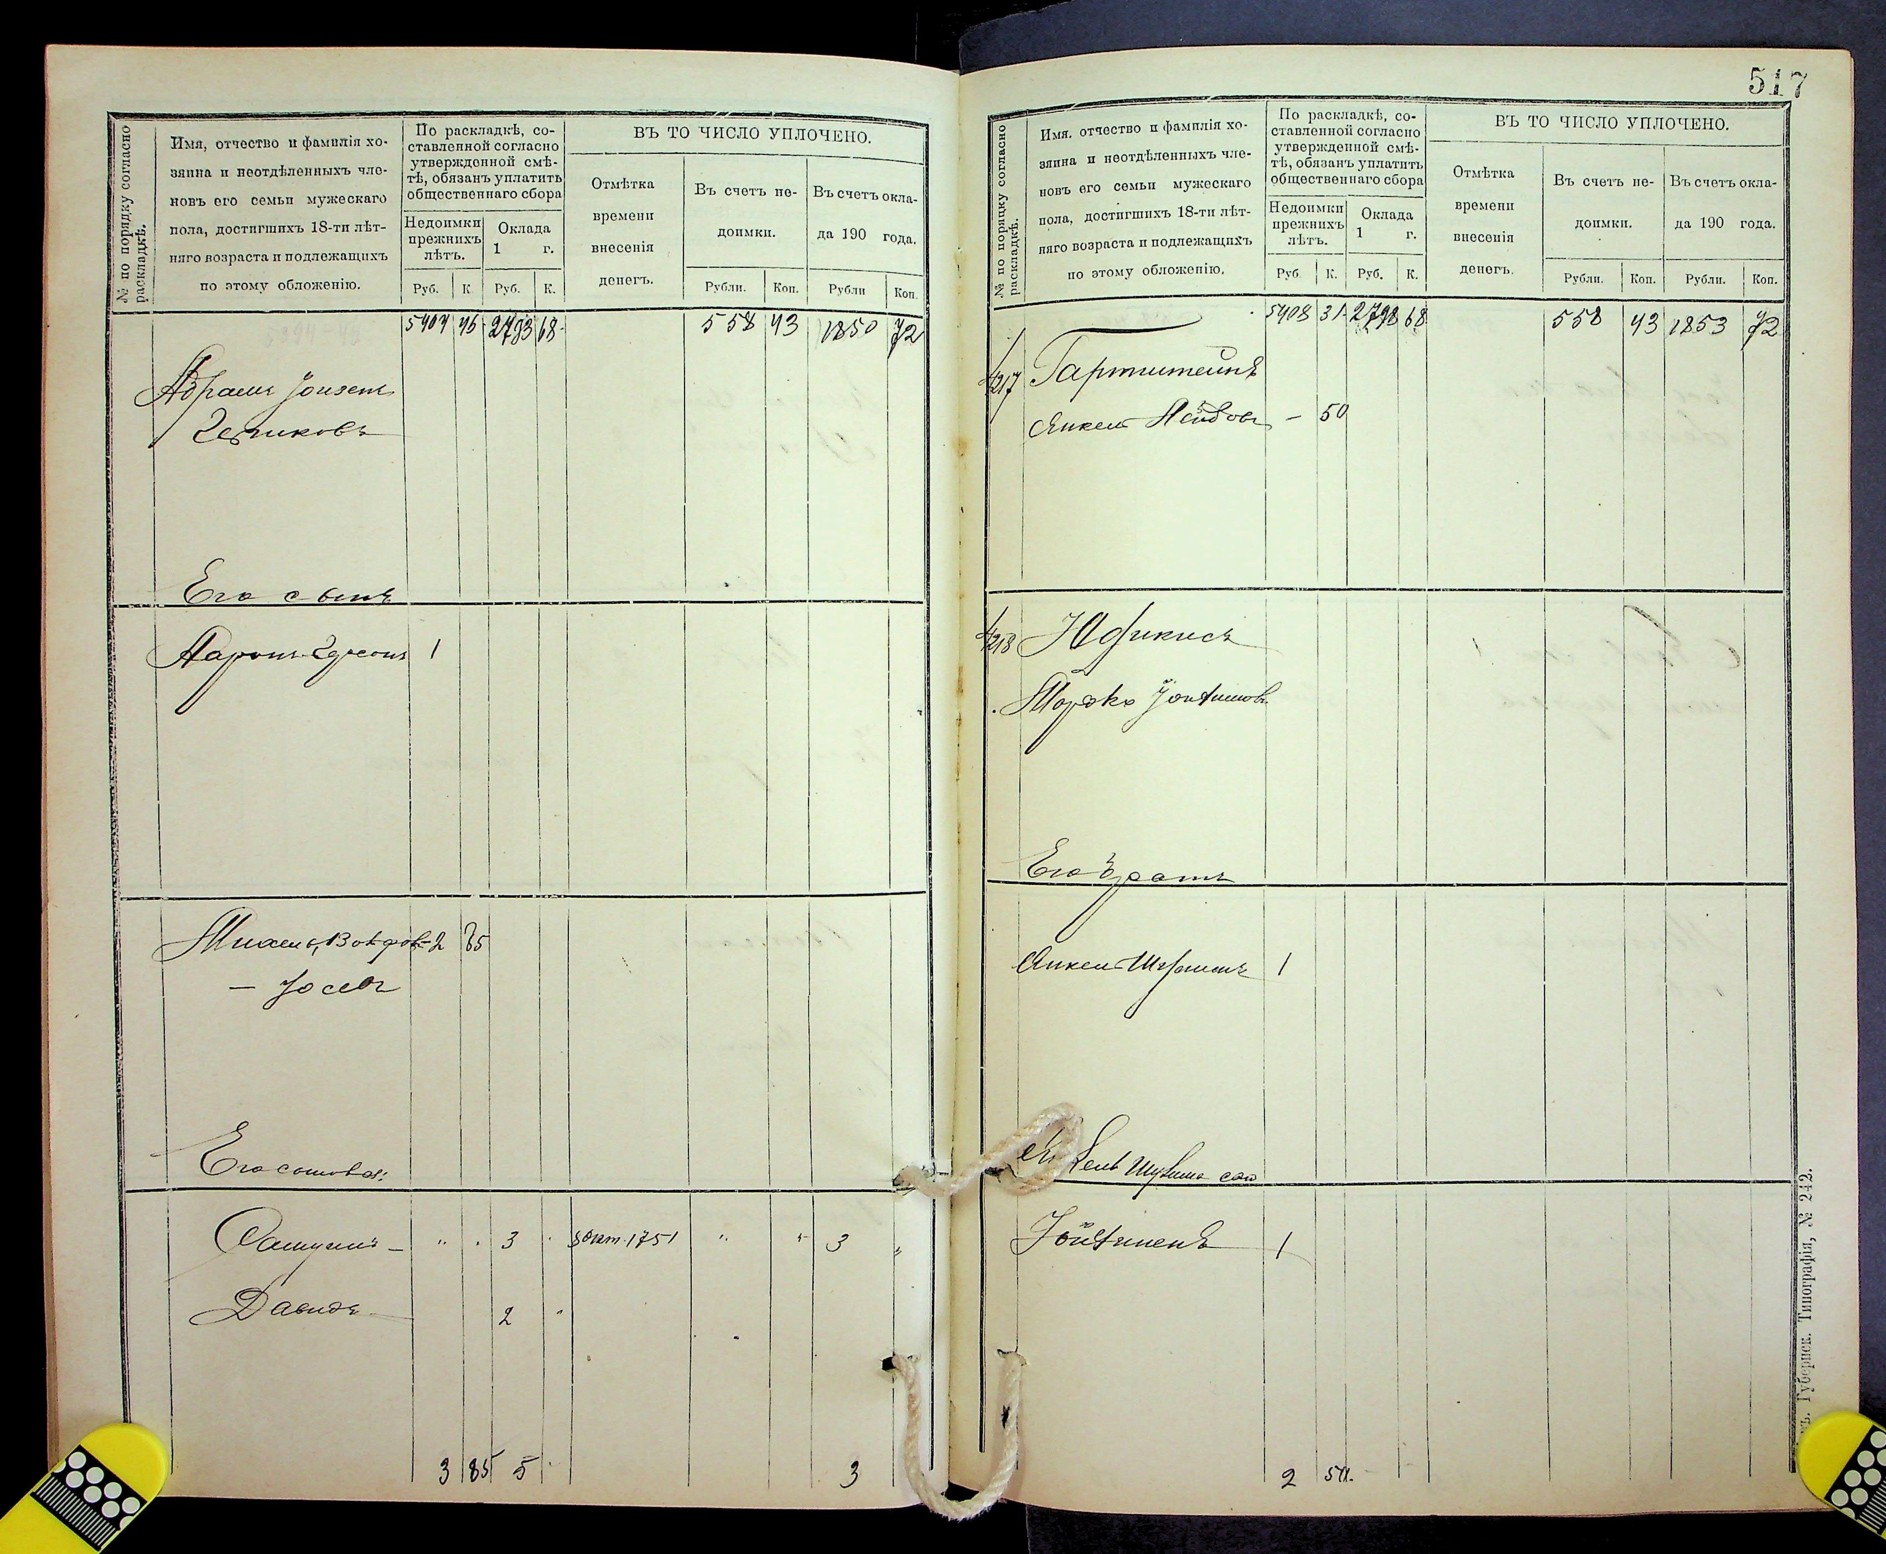 № по порядку согласно раскладкѣ.
Имя, отчество и фамилія хо-
зяина и неотдѣленныхъ чле-
новъ его семьи мужескаго
пола, достигшихъ 18-ти лѣт-
няго возраста и подлежащихъ
по этому обложенію.
По раскладкѣ, со-
ставленной согласно
утвержденной смѣ-
тѣ, обязанъ уплатить
общественнаго сбора
Недоимки
прежнихъ
лѣтъ.
Оклада
1 г.
Руб. К. Руб. К.
ВЪ ТО ЧИСЛО УПЛОЧЕНО.
Отмѣтка
времени
внесенія
денегъ.
Въ счетъ не-
доимки.
Въ счетъ окла-
да 190 года.
Рубли. Коп. Рубли Коп.
5404 46 2793 68 558 43 1850 72
Абрамъ
Его сынъ
Ааронъ 1
2 85
Іосель
Его
3 1751 3
Давидъ 2
3 85 5 3
517
№ по порядку согласно раскладкѣ.
Имя. отчество и фамилія хо-
зяина и неотдѣленныхъ чле-
новъ его семьи мужескаго
пола, достигшихъ 18-ти лѣт-
няго возраста и подлежащихъ
по этому обложенію.
По раскладкѣ, со-
ставленной согласно
утвержденной смѣ-
тѣ, обязанъ уплатить
общественнаго сбора
Недоимки
прежнихъ
лѣтъ.
Оклада
1 г.
Руб К. Руб. К.
ВЪ ТО ЧИСЛО УПЛОЧЕНО.
Отмѣтка
времени
внесенія
денегъ.
Въ счетъ не-
доимки.
Въ счетъ окла-
да 190 года.
Рубли. Коп. Рубли. Коп.
5408 31 2798 68 558 43 1853 72
1217 Гартштейнъ
Янкель Лейбовъ — 50
1218
Его братъ
Янкель 1
1
2 50
Губернск. Типографія, № 242.